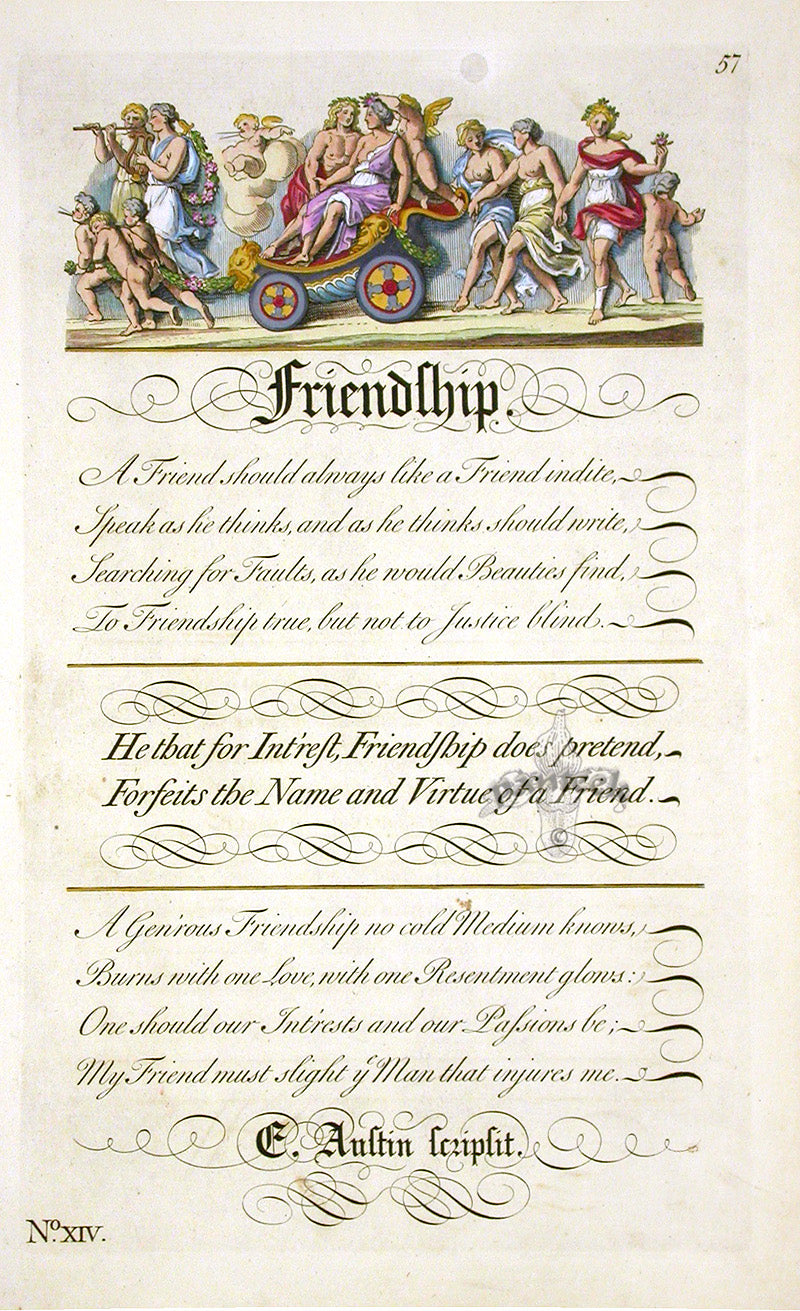 57
Friendſhip.
A Friend should always like a Friend indite,
Speak as he thinks, and as he thinks should write,
Searching for Faults, as he would Beauties find,
To Friendship true, but not to Justice blind.
He that for Int'reſt, Friendſhip does pretend,
Forfeits the Name and Virtue of a Friend.
A Gen'rous Friendship no cold Medium knows,
Burns with one Love, with one Resentment glows:
One should our Int'rests and our Paſsions be;
My Friend must slight yᵉ Man that injures me.
E. Auſtin ſcripſit.
Nº. XIV.